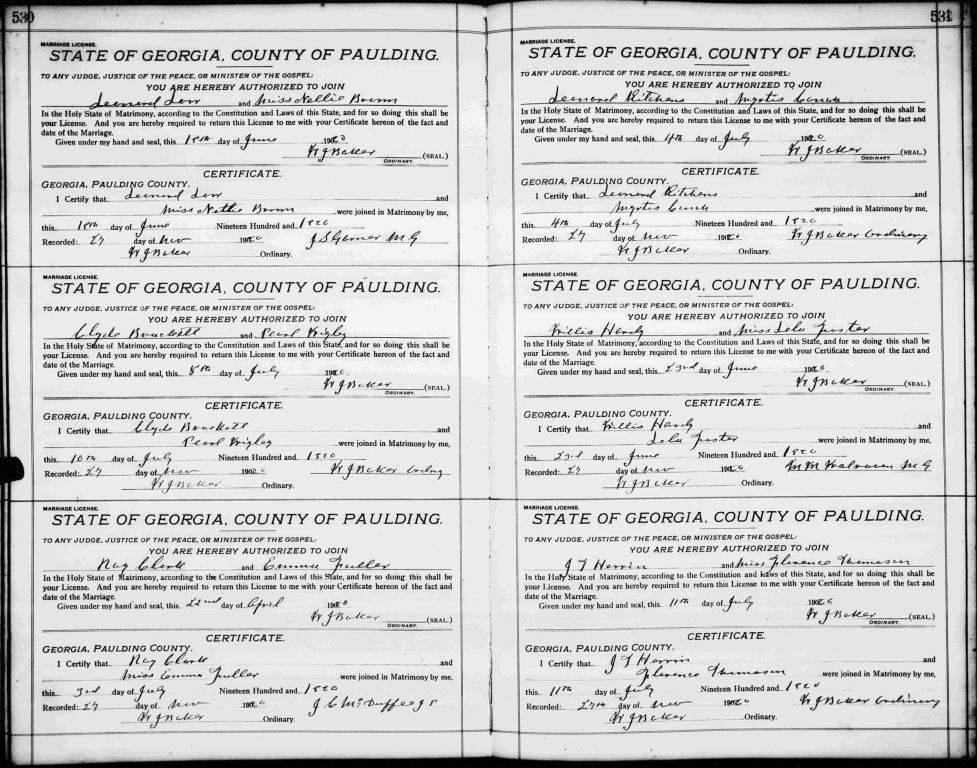 530
MARRIAGE LICENSE.
STATE OF GEORGIA, COUNTY OF PAULDING.
TO ANY JUDGE, JUSTICE OF THE PEACE, OR MINISTER OF THE GOSPEL:
YOU ARE HEREBY AUTHORIZED TO JOIN
Leonard and Miss Nellie Brown
In the Holy State of Matrimony, according to the Constitution and Laws of this State, and for so doing this shall be
your License. And you are hereby required to return this License to me with your Certificate hereon of the fact and
date of the Marriage.
Given under my hand and seal, this 18th day of June 1920
W J Baker (SEAL.)
ORDINARY.
CERTIFICATE.
GEORGIA, PAULDING COUNTY.
I Certify that Leonard and
Miss Nettie Brown were joined in Matrimony by me,
this 18th day of June Nineteen Hundred and 1920
Recorded: 27 day of Nov 1920 J S Garner M G
W J Baker Ordinary.
MARRIAGE LICENSE.
STATE OF GEORGIA, COUNTY OF PAULDING.
TO ANY JUDGE, JUSTICE OF THE PEACE, OR MINISTER OF THE GOSPEL:
YOU ARE HEREBY AUTHORIZED TO JOIN
Clyde Brackett and Pearl Wigley
In the Holy State of Matrimony, according to the Constitution and Laws of this State, and for so doing this shall be
your License. And you are hereby required to return this License to me with your Certificate hereon of the fact and
date of the Marriage.
Given under my hand and seal, this 8th day of July 1920
W J Baker (SEAL.)
ORDINARY.
CERTIFICATE.
GEORGIA, PAULDING COUNTY.
I Certify that Clyde Brackett and
Pearl Wigley were joined in Matrimony by me,
this 10th day of July Nineteen Hundred and 1920
Recorded: 27 day of Nov 1920 W J Baker
W J Baker Ordinary.
MARRIAGE LICENSE.
STATE OF GEORGIA, COUNTY OF PAULDING.
TO ANY JUDGE, JUSTICE OF THE PEACE, OR MINISTER OF THE GOSPEL:
YOU ARE HEREBY AUTHORIZED TO JOIN
Roy Clark and Emma Fuller
In the Holy State of Matrimony, according to the Constitution and Laws of this State, and for so doing this shall be
your License. And you are hereby required to return this License to me with your Certificate hereon of the fact and
date of the Marriage.
Given under my hand and seal, this 22nd day of April 1920
W J Baker (SEAL.)
ORDINARY.
CERTIFICATE.
GEORGIA, PAULDING COUNTY.
I Certify that Roy Clark and
Miss Emma Fuller were joined in Matrimony by me,
this 3rd day of July Nineteen Hundred and 1920
Recorded: 27 day of Nov 1920 J C McDuffee J S
W J Baker Ordinary.
531
MARRIAGE LICENSE.
STATE OF GEORGIA, COUNTY OF PAULDING.
TO ANY JUDGE, JUSTICE OF THE PEACE, OR MINISTER OF THE GOSPEL:
YOU ARE HEREBY AUTHORIZED TO JOIN
Leonard Kitchens and Myrtis Couch
In the Holy State of Matrimony, according to the Constitution and Laws of this State, and for so doing this shall be
your License. And you are hereby required to return this License to me with your Certificate hereon of the fact and
date of the Marriage.
Given under my hand and seal, this 4th day of July 1920
W J Baker (SEAL.)
ORDINARY.
CERTIFICATE.
GEORGIA, PAULDING COUNTY.
I Certify that Leonard Kitchens and
Myrtis Couch were joined in Matrimony by me,
this 4th day of July Nineteen Hundred and 1920
Recorded: 27 day of Nov 1920 W J Baker Ordinary
W J Baker Ordinary.
MARRIAGE LICENSE.
STATE OF GEORGIA, COUNTY OF PAULDING.
TO ANY JUDGE, JUSTICE OF THE PEACE, OR MINISTER OF THE GOSPEL:
YOU ARE HEREBY AUTHORIZED TO JOIN
Willis Hardy and Miss Lela Foster
In the Holy State of Matrimony, according to the Constitution and Laws of this State, and for so doing this shall be
your License. And you are hereby required to return this License to me with your Certificate hereon of the fact and
date of the Marriage.
Given under my hand and seal, this 23rd day of June 1920
W J Baker (SEAL.)
ORDINARY.
CERTIFICATE.
GEORGIA, PAULDING COUNTY.
I Certify that Willis Hardy and
Lela Foster were joined in Matrimony by me,
this 23rd day of June Nineteen Hundred and 1920
Recorded: 27 day of Nov 1920 M M Walraven M G
W J Baker Ordinary.
MARRIAGE LICENSE.
STATE OF GEORGIA, COUNTY OF PAULDING.
TO ANY JUDGE, JUSTICE OF THE PEACE, OR MINISTER OF THE GOSPEL:
YOU ARE HEREBY AUTHORIZED TO JOIN
J T Herrin and Miss Florence Thomason
In the Holy State of Matrimony, according to the Constitution and Laws of this State, and for so doing this shall be
your License. And you are hereby required to return this License to me with your Certificate hereon of the fact and
date of the Marriage.
Given under my hand and seal, this 11th day of July 1920
W J Baker (SEAL.)
ORDINARY.
CERTIFICATE.
GEORGIA, PAULDING COUNTY.
I Certify that J T Herrin and
Florence Thomason were joined in Matrimony by me,
this 11th day of July Nineteen Hundred and 1920
Recorded: 27th day of Nov 1920 W J Baker Ordinary
W J Baker Ordinary.